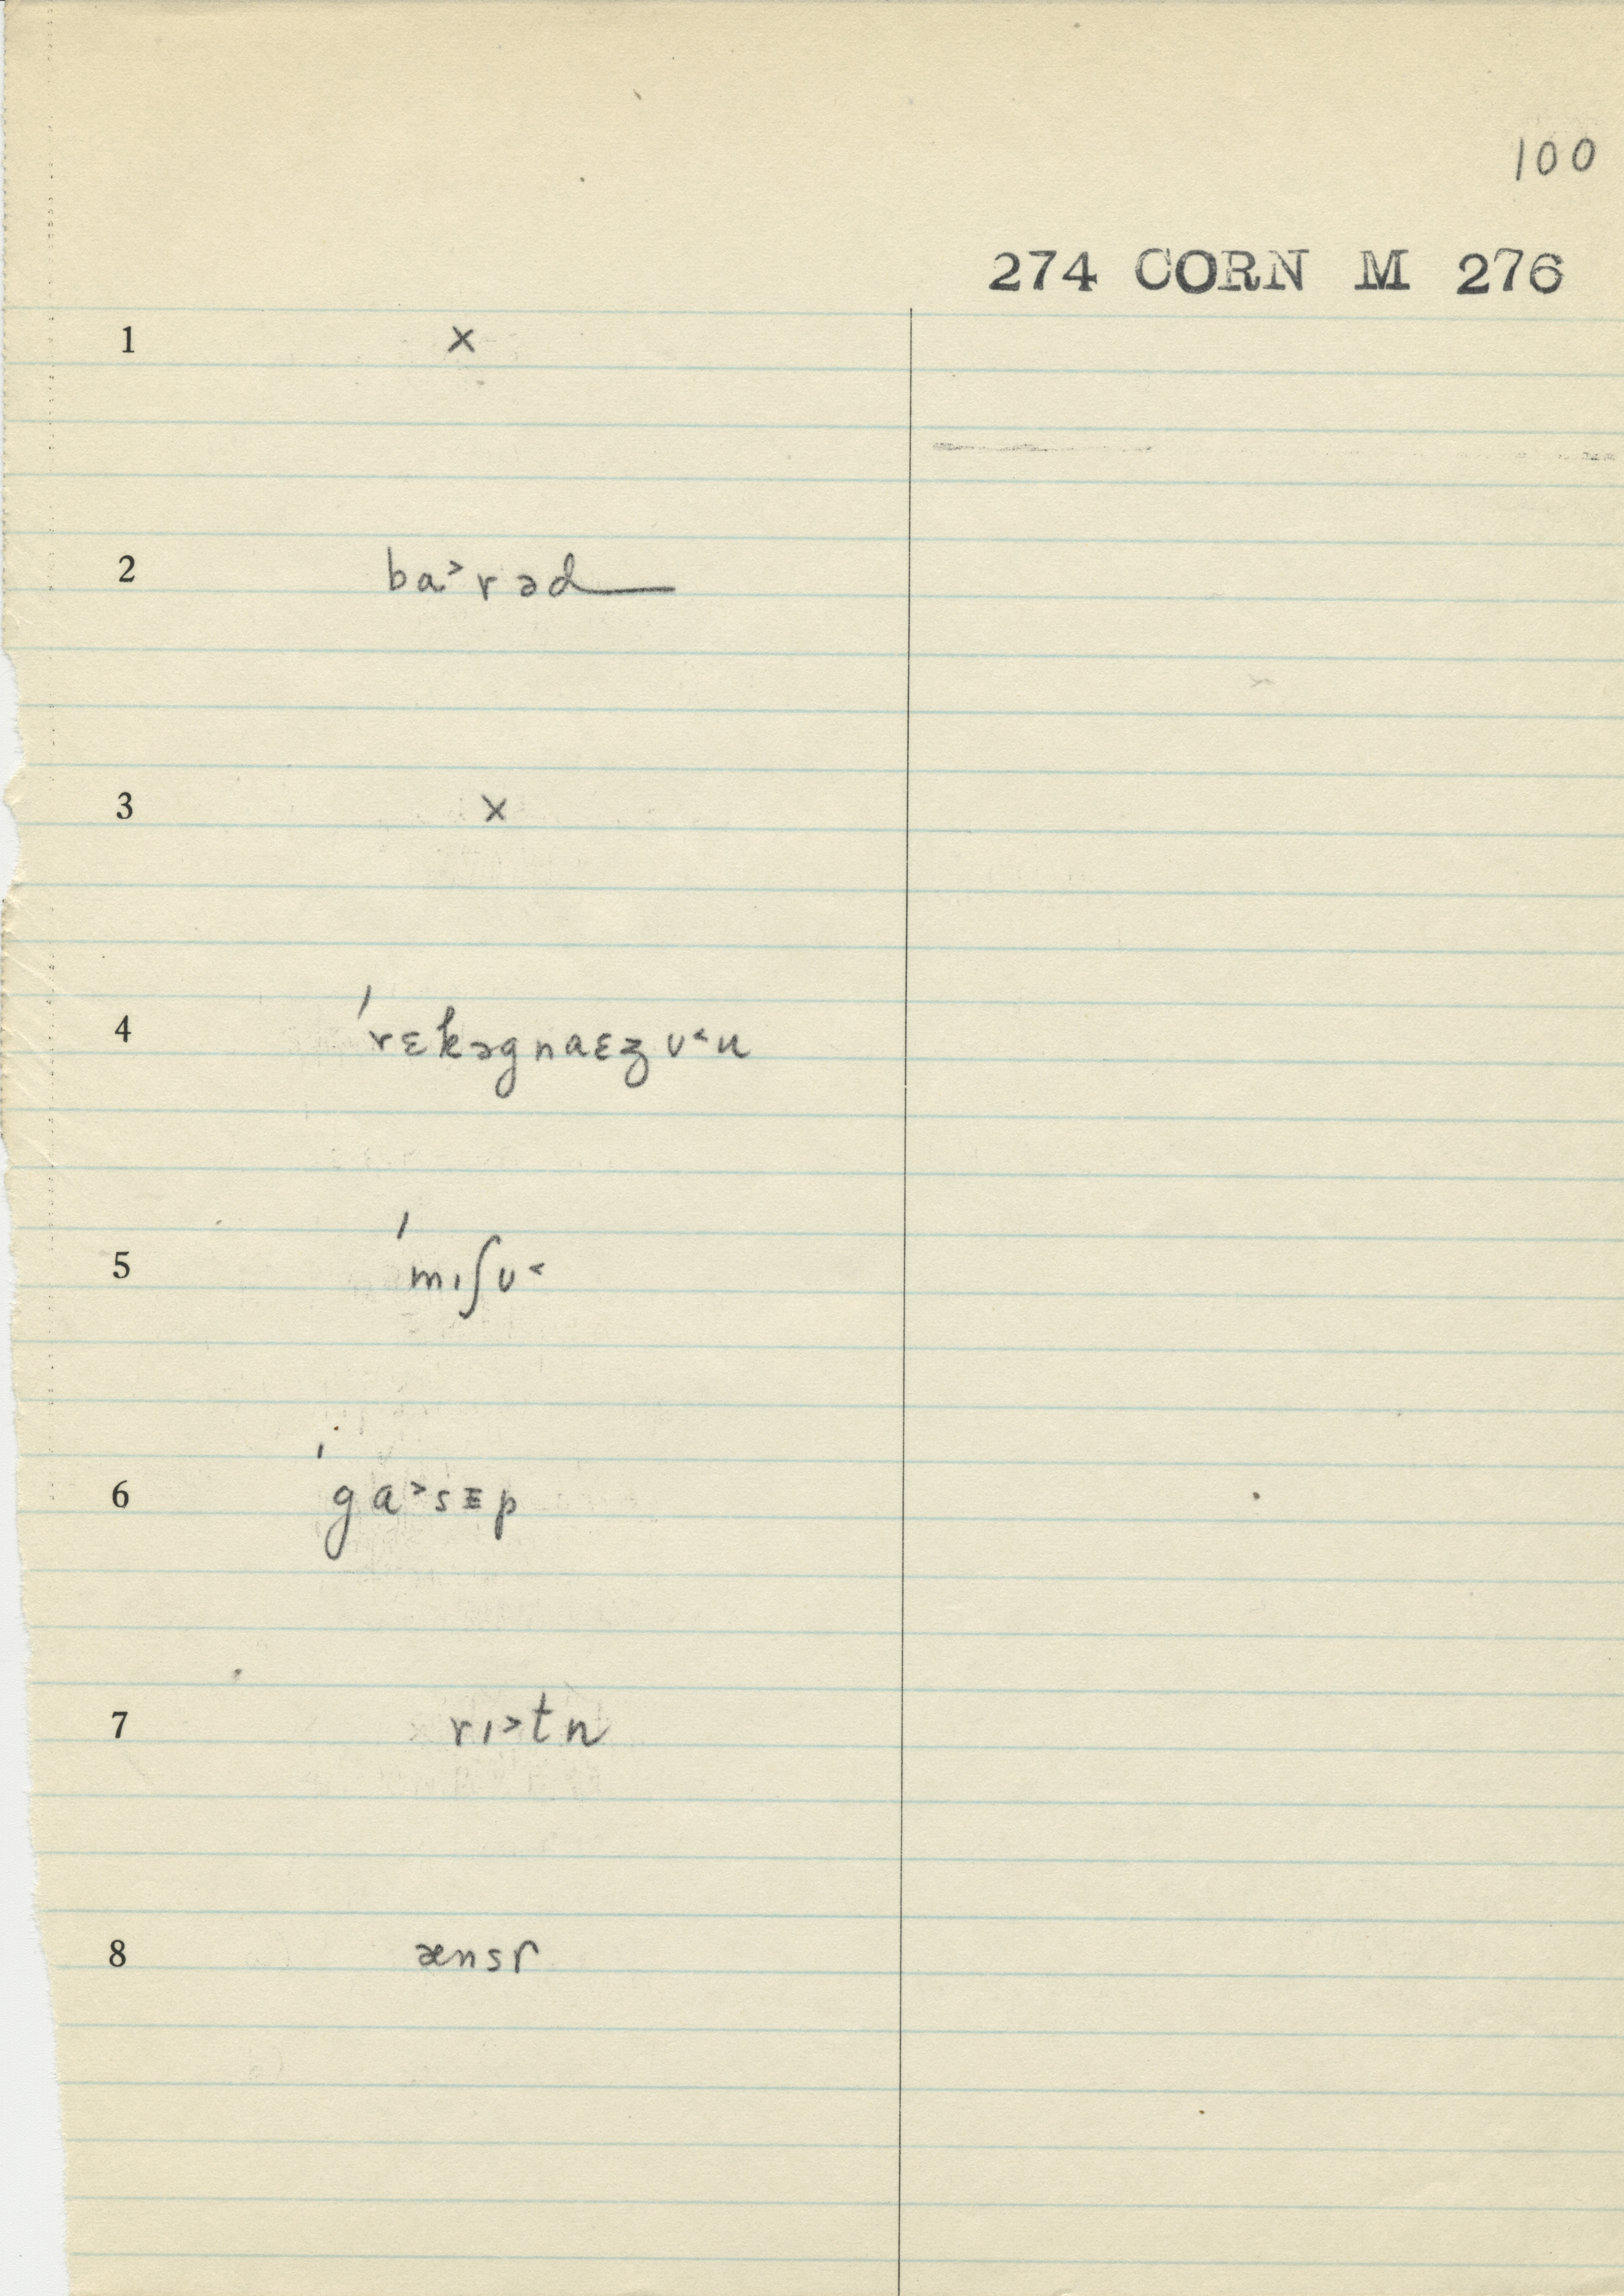 100
274 CORN M 276
1 ×
2 ba˃rəd
3 ×
4 ˈrɛkəgnaɛzʊ˂u
5 ˈmɪʃʊ˂
6 ˈga˃sᴇp
7 rɪ˃tn
8 ænsɼ